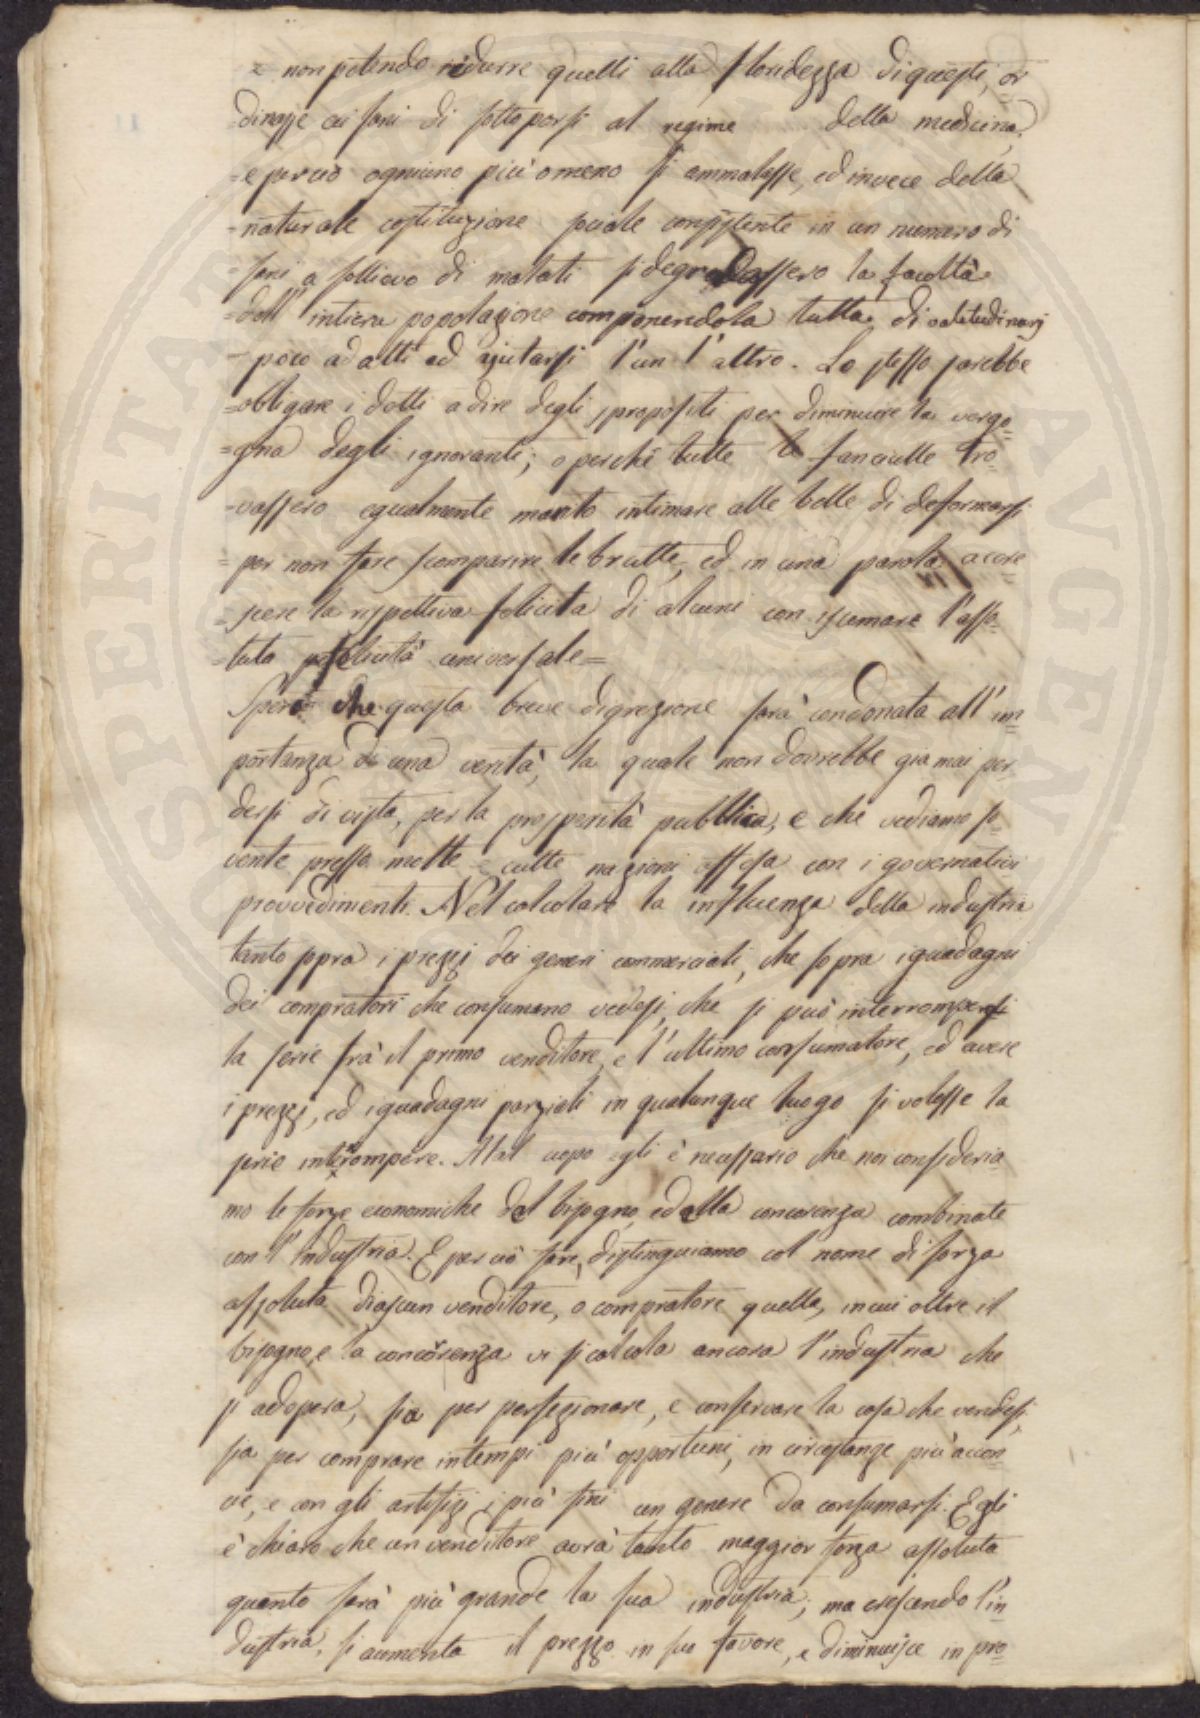 = non potendo ridurre quelli alla floridezza di questi, or
=dinasse ai sani di sottoporsi al regime della medicina,
=e perciò ogniuno più o meno si ammalasse, ed invece della
=naturale costituzione sociale consistente in un numero di
=sani a sollievo di malati si degradassero la facoltà
=dell'intiera popolazione componendola tutta di valitudinarj
=poco adatti ad ajutarsi l'un l'altro. Lo stesso sarebbe
=obligare i dotti a dire degli spropositi per diminuire la vergo=
=gna degli ignoranti; o perchè tutte le fanciulle tro=
=vassero egualmente marito intimare alle belle di deformarsi
=per non fare scomparire le brutte, ed in una parola accre=
=scere la rispettiva felicità di alcuni con iscemare l'asso=
=luta felicità universale=
Spero che questa breve digrezione sarà condonata all'im=
portanza di una verità, la quale non dovrebbe già mai per=
dersi di vista, per la prosperità pubblica, e che vediamo so=
vente presso molte culte nazioni offesa con i governativi
provvedimenti. Nel calcolare la influenza della industria
tanto sopra i prezzi dei generi commerciali, che sopra i guadagni
dei compratori che consumano vedesi, che si può interrompersi
la serie frà il primo venditore, e l'ultimo consumatore, ed avere
i prezzi, ed i guadagni parziali in qualunque luogo si volesse la
serie interompere. Al al uopo egli è necessario che noi consideria=
mo le forze economiche dal bisogno, ed alla concorenza combinate
con l'industria. E per ciò fare, distinguiamo col nome di forza
assoluta di ascun venditore, o compratore quella, in cui oltre il
bisogno, e la concorenza vi si calcola ancora l'industria che
si adopera, sia per perfezionare, e conservare la cosa che vendesi,
sia per comprare in tempi più opportuni, in circostanze più accon=
cie, e con gli artifizj i più fini un genere da consumarsi. Egli
è chiaro che un venditore avrà tanto maggior forza assoluta
quanto sarà più grande la sua industria; ma crescendo l'in
dustria, si aumenta il prezzo in suo favore, e diminuisce in pro=